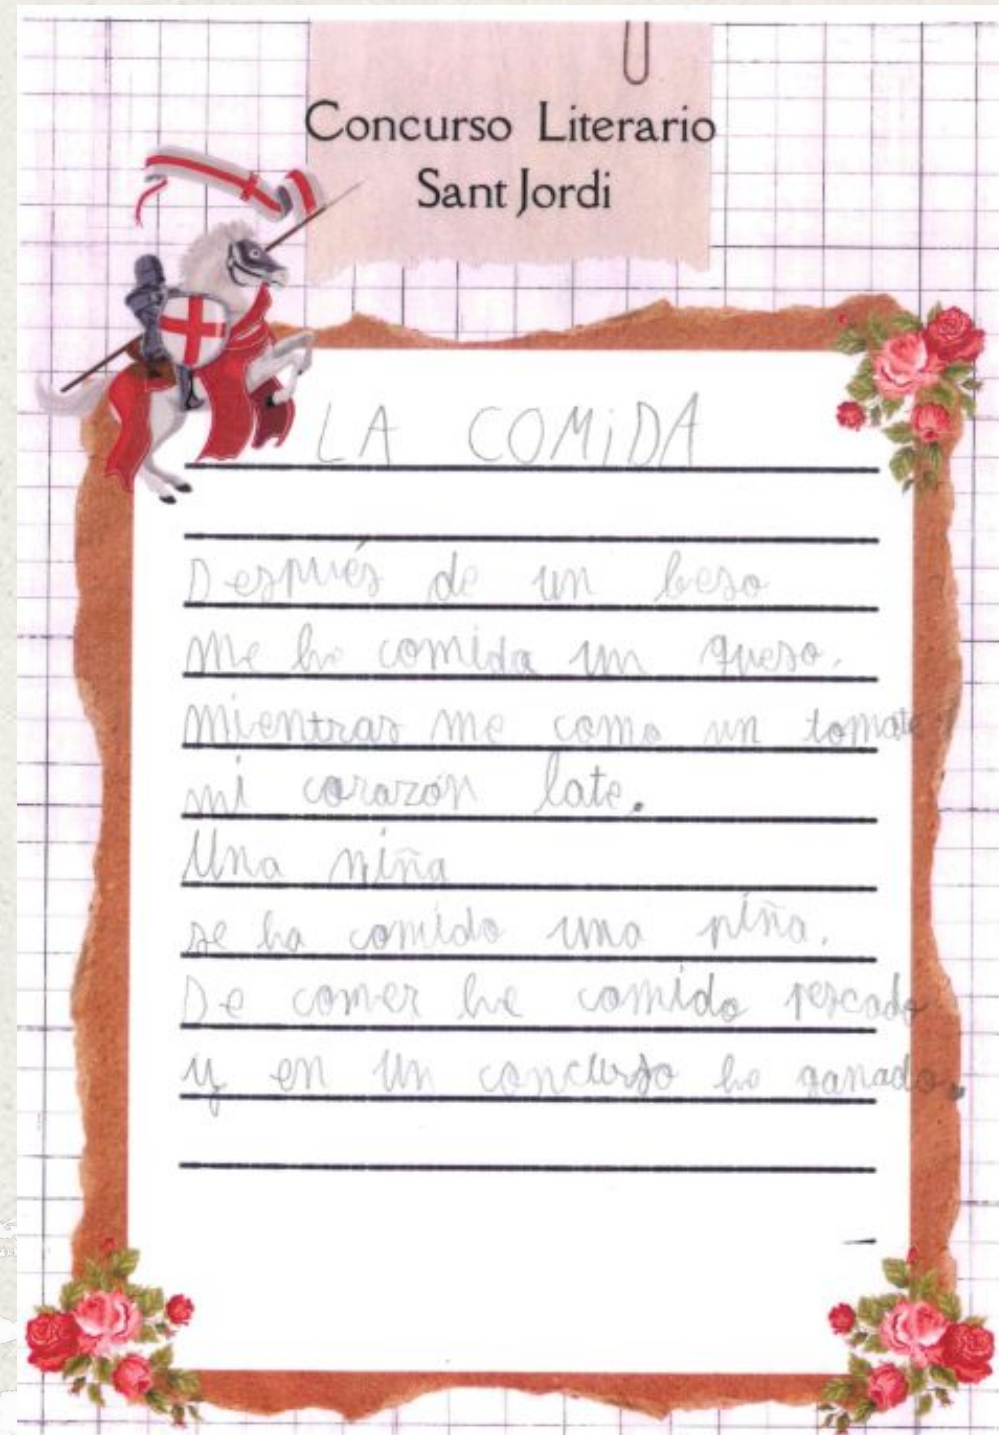 Concurso Literario
Sant Jordi
LA COMiDA
Después de un beso
me he comida un queso.
mientras me como un tomate
mi corazón late.
Una niña
se ha comido una piña.
De comer he comido pescado
y en un concurso he ganado.